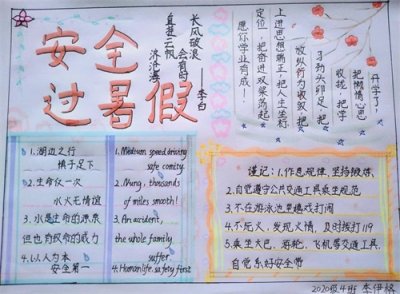 安全
过暑假
长风破浪
会有时
直挂云帆
济沧海
——李白
开学了，
把懒惰心思
收拢，把学
习劲头卯足，把
放纵行为收敛，把
上进思想端正，把人生坐标
定位，把奋进双桨荡起，
愿你学业有成！
1.湖边之行
慎于足下
2.生命仅一次
水火无情谊
3.水是生命的源泉
但也有致命的威力
4.以人为本
安全第一
1. Medium speed driving
safe comity.
2. Nung, thousands
of miles smooth!
3. An accident,
the whole family
suffer
4. Human life, safety first
谨记：1.作息规律，坚持锻炼
2.自觉遵守公共交通工具乘坐规范
3.不在游泳池里嬉戏打闹
4.不玩火，发现火情，及时拨打119
5.乘坐大巴、游轮、飞机等交通工具，
自觉系好安全带
2020级4班 李伊格